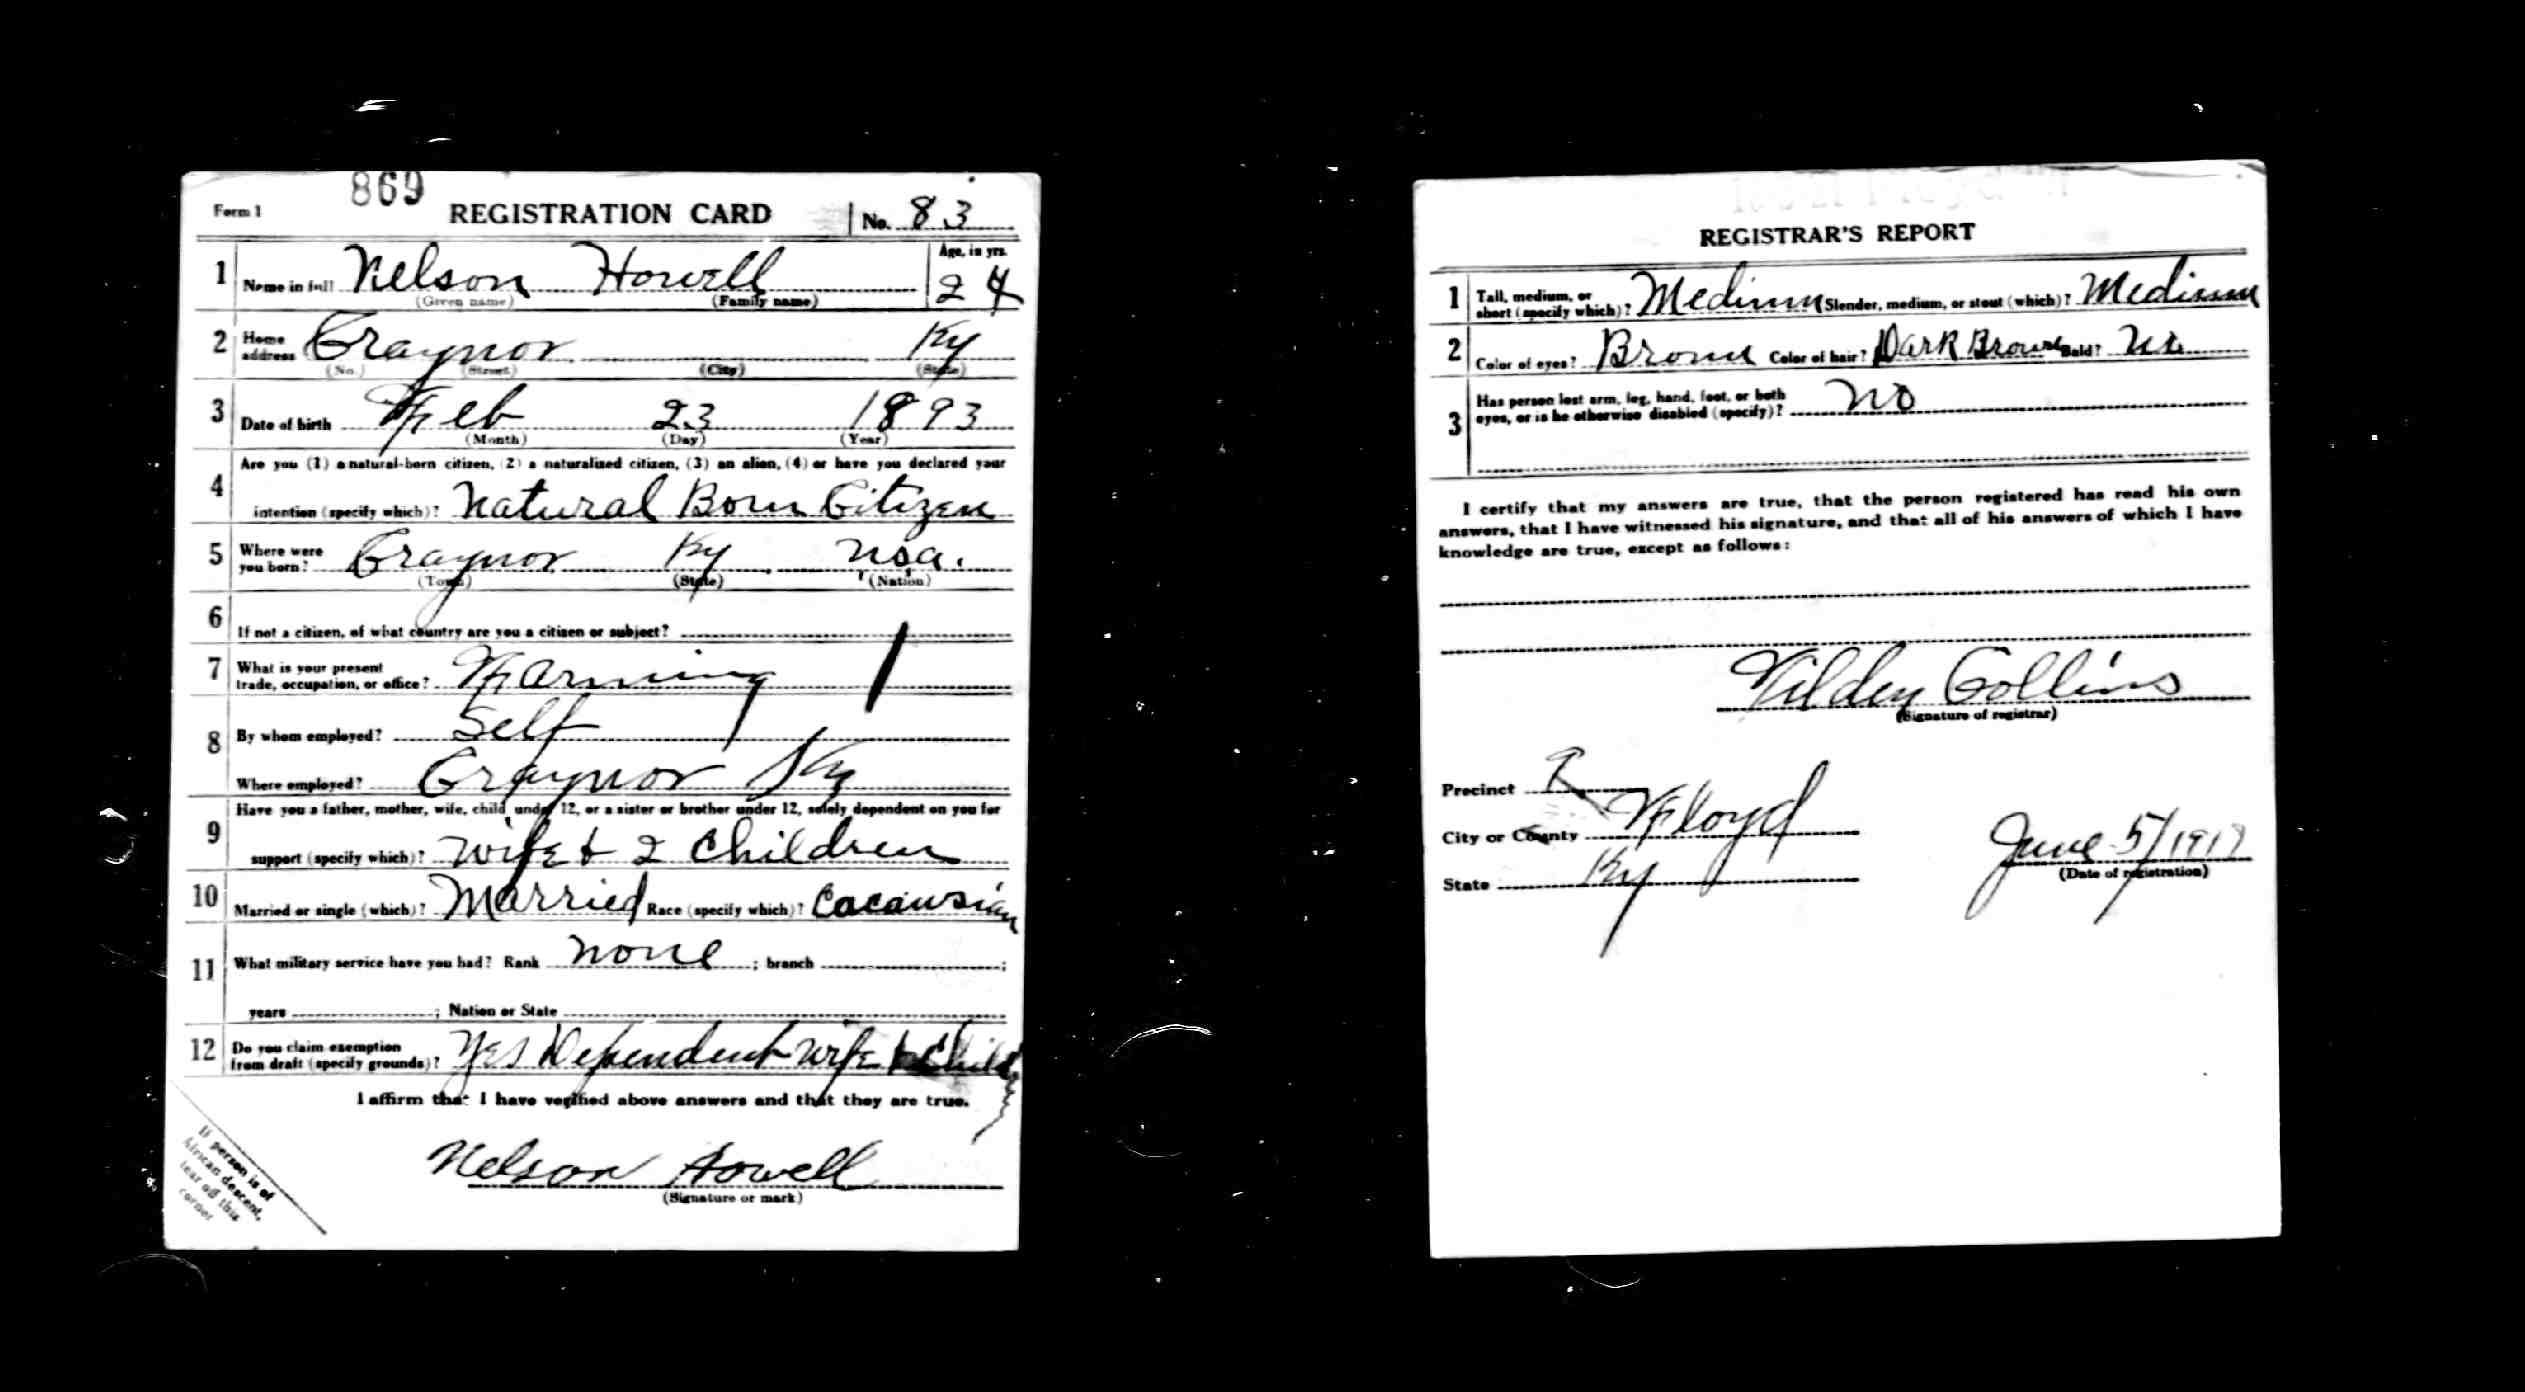 869
Form 1 REGISTRATION CARD No. 83
1 Name in full Nelson Howell Age, in yrs. 24
(Given name) (Family name)
2 Home address Craynor Ky
(No.) (Street) (City) (State)
3 Date of birth Feb 23 1893
(Month) (Day) (Year)
4 Are you (1) a natural-born citizen, (2) a naturalized citizen, (3) an alien, (4) or have you declared your
intention (specify which)? Natural Born Citizen
5 Where were you born? Craynor Ky USA.
(Town) (State) (Nation)
6 If not a citizen, of what country are you a citizen or subject?
7 What is your present trade, occupation, or office? Farming
8 By whom employed? Self
Where employed? Craynor Ky
9 Have you a father, mother, wife, child under 12, or a sister or brother under 12, solely dependent on you for
support (specify which)? Wife & 2 Children
10 Married or single (which)? Married Race (specify which)? Cacausian
11 What military service have you had? Rank none ; branch ;
years ; Nation or State
12 Do you claim exemption from draft (specify grounds)? Yes Dependent wife &
I affirm that I have verified above answers and that they are true.
Nelson Howell
(Signature or mark)
If person is of
African descent,
tear off this
corner
REGISTRAR'S REPORT
1 Tall, medium, or short (specify which)? Medium Slender, medium, or stout (which)? Medium
2 Color of eyes? Brown Color of hair? Dark Brown Bald? No
3 Has person lost arm, leg, hand, foot, or both
eyes, or is he otherwise disabled (specify)? No
I certify that my answers are true, that the person registered has read his own
answers, that I have witnessed his signature, and that all of his answers of which I have
knowledge are true, except as follows:
Tilden Collins
(Signature of registrar)
Precinct
City or County Floyd
State Ky
June 5/1917
(Date of registration)